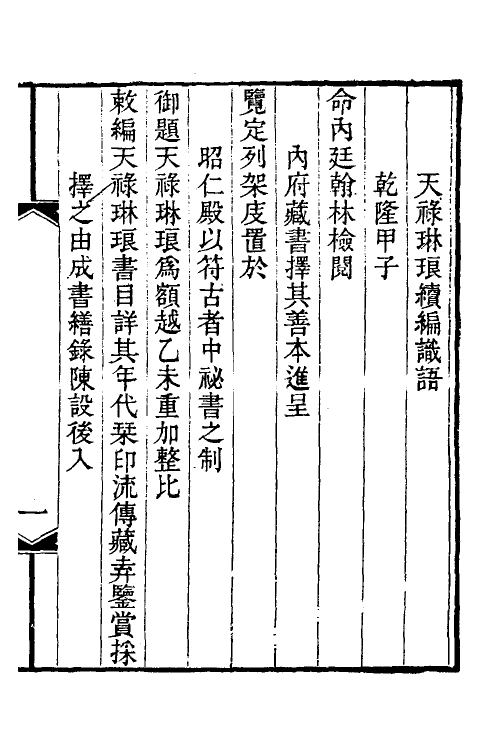 天祿琳琅續編識語
乾隆甲子
命內廷翰林檢閱
內府藏書擇其善本進呈
覽定列架庋置於
昭仁殿以符古者中祕書之制
御題天祿琳琅爲額越乙未重加整比
敕編天祿琳琅書目詳其年代栞印流傳藏弆鑒賞採
擇之由成書繕錄陳設後入
一